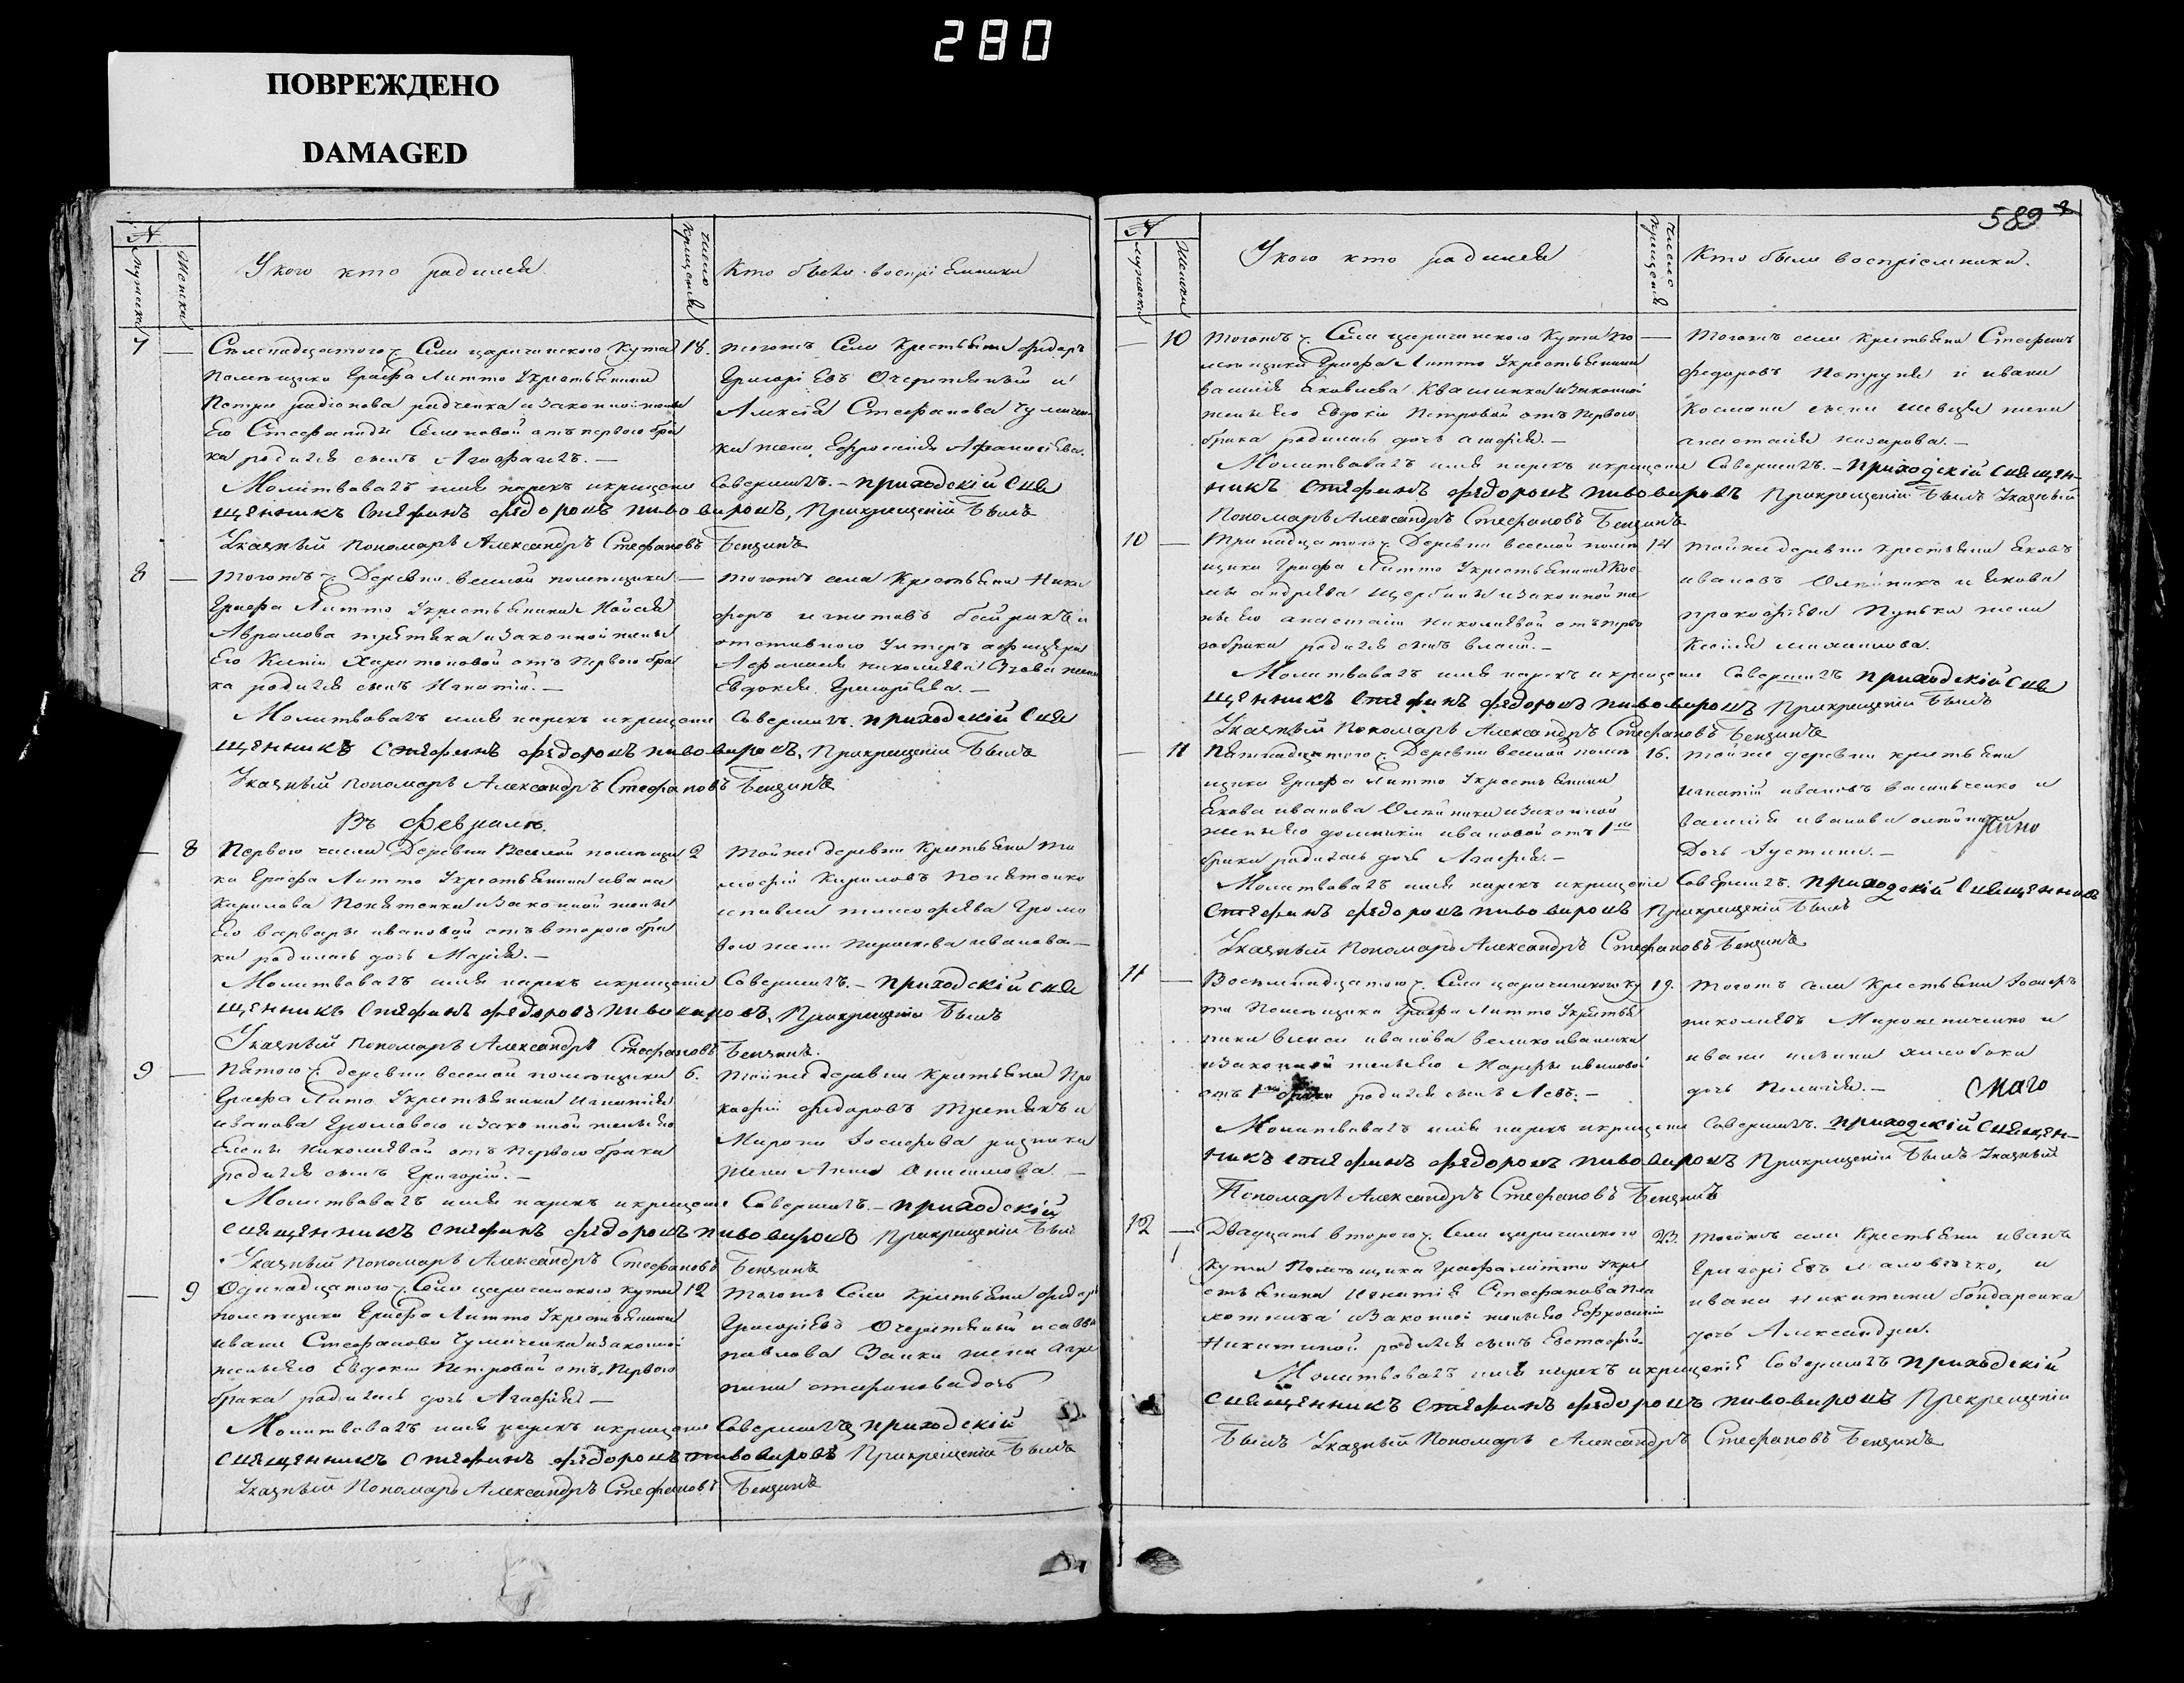 280
ПОВРЕЖДЕНО
DAMAGED
№
Мужеска
Женска
У кого кто родился
Число крещения
Кто были восприемники
7 — Семнадцатого ч. Села царичинского Кута
помещика Графа Литто Укрестьянина
Петра радіонова радченка изаконной жены
Его Стефаниды Семеновой отъ первого бра
ка родился сынъ Агафаилъ. —
18. тогожъ Села Крестьянинъ Федоръ
Григоріевъ Очеритяный и
Алексея Стефанова Чумичен
ка жена Ефросинія Афанасіева.
Молитвовалъ имя нарекъ икрещеніе Совершилъ. — приходскій Свя
щенникъ Стефанъ Федоровъ пивоваровъ, Прикрещеніи Былъ
Указный Пономарь Александръ Стефановъ Бензинъ
8 — тогожъ ч. Деревни веселой помещика
Графа Литто Укрестьянина Моисея
Аврамова третяка изаконной жены
Его Ксеніи Харитоновой отъ первого бра
ка родился сынъ Игнатій. —
— тогожъ села Крестьянинъ Ники
форъ игнатовъ байракъ и
отставного Унтеръ афицера
Афанасія николаева жена
Евдокія Григоріева. —
Молитвовалъ имя нарекъ икрещеніе Совершилъ. приходскій Свя
щенникъ Стефанъ Федоровъ пивоваровъ, Прикрещеніи Былъ
Указный пономарь Александръ Стефановъ Бензинъ
Въ февралѣ.
— 8 Первого числа Деревни Веселой помещи
ка Графа Литто Укрестьянина ивана
Кирилова Покатенка изаконной жены
Его варвары ивановой отъ второго бра
ка родилась дочь Марія. —
2 тойже деревни Крестьянинъ ти
мофій Кириловъ Покатенко
ипавла тимофѣева Громо
вого жена параскева иванова —
Молитвовалъ имя нарекъ икрещеніе Совершилъ. — приходскій Свя
щенникъ Стефанъ Федоровъ пивоваровъ, Прикрещеніи Былъ
Указный Пономарь Александръ Стефановъ Бензинъ.
9 — Пятого ч. деревни веселой помещика
Графа Лито Укрестьянина игнатія
иванова Громового изаконной жены его
Елены Николаевой отъ Первого брака
родился сынъ Григорій. —
6. тойже деревни Крестьянинъ Про
кофій Федоровъ Третякъ и
Мирона Іосифова
жена Анна Онисимова. —
Молитвовалъ имя нарекъ икрещеніе Совершилъ. — приходскій
Священникъ Стефанъ Федоровъ пивоваровъ Прикрещеніи Былъ
Указный Пономарь Александръ Стефановъ Бензинъ
— 9 Одинадцатого ч. Села царичанского кута
помещика Графа Литто Укрестьянина
ивана Стефанова Чумиченка изаконной
жены его Евдокіи Петровой отъ Первого
брака родилась дочь Агафія —
12 тогожъ Села Крестьянинъ Федоръ
Григоріевъ Очеритяный исаввы
павлова Заики жена Агри
пина стефанова дочь
Молитвовалъ имя нарекъ икрещеніе Совершилъ приходскій
Священникъ Стефанъ Федоровъ пивоваровъ Прикрещеніи Былъ
Указный Пономарь Александръ Стефановъ Бензинъ
589
№
Мужеска
Женска
У кого кто родился
Число крещения
Кто были восприемники.
— 10 тогожъ ч. Села царичанского Кута по
мещика Графа Литто Укрестьянина
василія яковлева Квашинка изаконной
жены его Евдокіи Петровой отъ первого
брака родилась дочь агафія. —
— тогожъ села крестьянинъ Стефанъ
федоровъ Петруня и ивана
Космина сына шевця жена
анастасія назарова. —
Молитвовалъ имя нарекъ икрещеніе Совершилъ. — приходскій Священ-
никъ Стефанъ Федоровъ пивоваровъ Прикрещеніи Былъ Указный
Пономарь Александръ Стефановъ Бензинъ
10 — Тринадцатого ч. Деревни веселой поме
щика Графа Литто Укрестьянина Кос
мы андрѣева щербины изаконной же
ны его анастасіи николаевой отъ перво
го брака родился сынъ власій. —
14 тойже деревни крестьянинъ Яковъ
ивановъ Олѣйникъ и якова
прокофіева Пунька жена
Ксенія михаилова.
Молитвовалъ имя нарекъ икрещеніе Совершилъ приходскій Свя
щенникъ Стефанъ Федоровъ пивоваровъ Прикрещеніи Былъ
Указный Пономарь Александръ Стефановъ Бензинъ
— 11 Пятнадцатого ч. Деревни веселой поме
щика Графа Литто Укрестьянина
Якова иванова Олѣйника изаконной
жены его домникіи ивановой отъ 1го
брака родилась дочь Агафія. —
16. тойже деревни крестьянинъ
игнатій ивановъ васильченко и
василія иванова олѣйника
Дочь Іустина. —
Молитвовалъ имя нарекъ икрещеніе Совершилъ. приходскій Священникъ
Стефанъ Федоровъ пивоваровъ Прикрещеніи Былъ
Указный Пономарь Александръ Стефановъ Бензинъ
11 — Восемнадцатого ч. Села царичинского ку
та Помещика Графа Литто Укрестья
нина иванова великоиваненка
изаконной жены его Марфы ивановой
отъ 1го брака родился сынъ Левъ. —
19. тогожъ села Крестьянинъ Іосифъ
николаевъ Мирошниченко и
ивана ильина хилобока
дочь Пелагія. —
Молитвовалъ имя нарекъ икрещеніе Совершилъ. приходскій Священ-
никъ Стефанъ Федоровъ пивоваровъ Прикрещеніи Былъ Указный
Пономарь Александръ Стефановъ Бензинъ
12 — Двадцать второго ч. Села царичинского
кута Помещика Графа литто Укре
стьянина игнатія Стефанова Пла
хотника изаконной жены его Ефросиніи
Никитиной родился сынъ Евстафій
23. тогожъ села Крестьянинъ иванъ
Григоріевъ Маловичко, и
ивана никитина бондаренка
дочь Александра.
Молитвовалъ имя нарекъ икрещенія Совершилъ приходскій
Священникъ Стефанъ Федоровъ пивоваровъ Прекрещеніи
Былъ Указный Пономарь Александръ Стефановъ Бензинъ